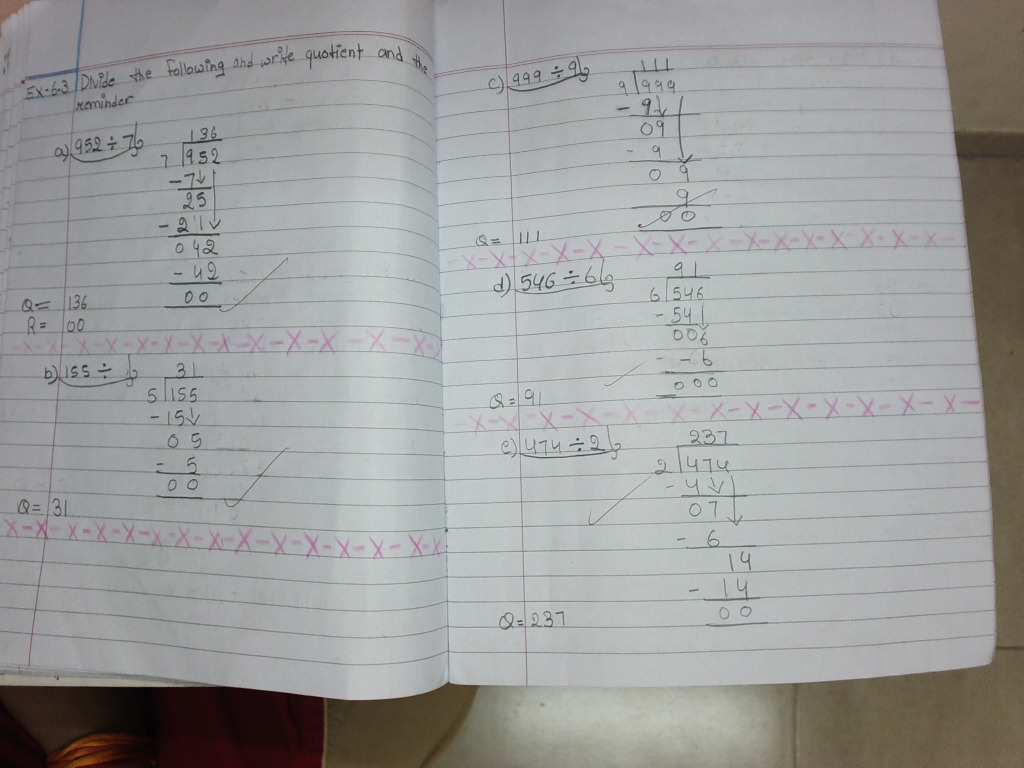 Ex-6.3 Divide the following and write quotient and the
reminder
a) 952 ÷ 7
136
7 952
-7
25
-21
042
-42
00
Q = 136
R = 00
b) 155 ÷
31
5 155
-15
05
- 5
00
Q = 31
c) 999 ÷ 9
111
9 999
- 9
09
- 9
09
9
00
Q = 111
d) 546 ÷ 6
91
6 546
-54
006
- - 6
000
Q = 91
e) 474 ÷ 2
237
2 474
- 4
07
- 6
14
- 14
00
Q = 237